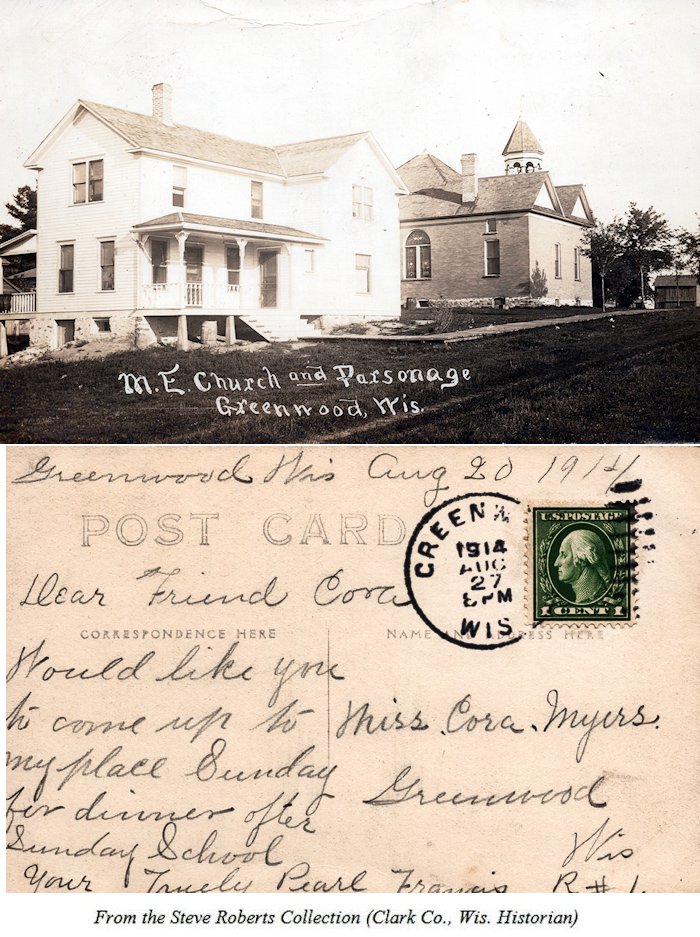 M.E. Church and Parsonage
Greenwood, Wis.
Greenwood Wis Aug 20 1914
POST CARD
GREENW
1914
AUG
27
8 PM
WIS
U.S. POSTAGE
1 CENT 1
Dear Friend Cora
CORRESPONDENCE HERE
NAME AND ADDRESS HERE
Would like you
to come up to
my place Sunday
for dinner after
Sunday School
Your Truely Pearl Francis
Miss. Cora. Myers.
Greenwood
Wis
R#1.
From the Steve Roberts Collection (Clark Co., Wis. Historian)